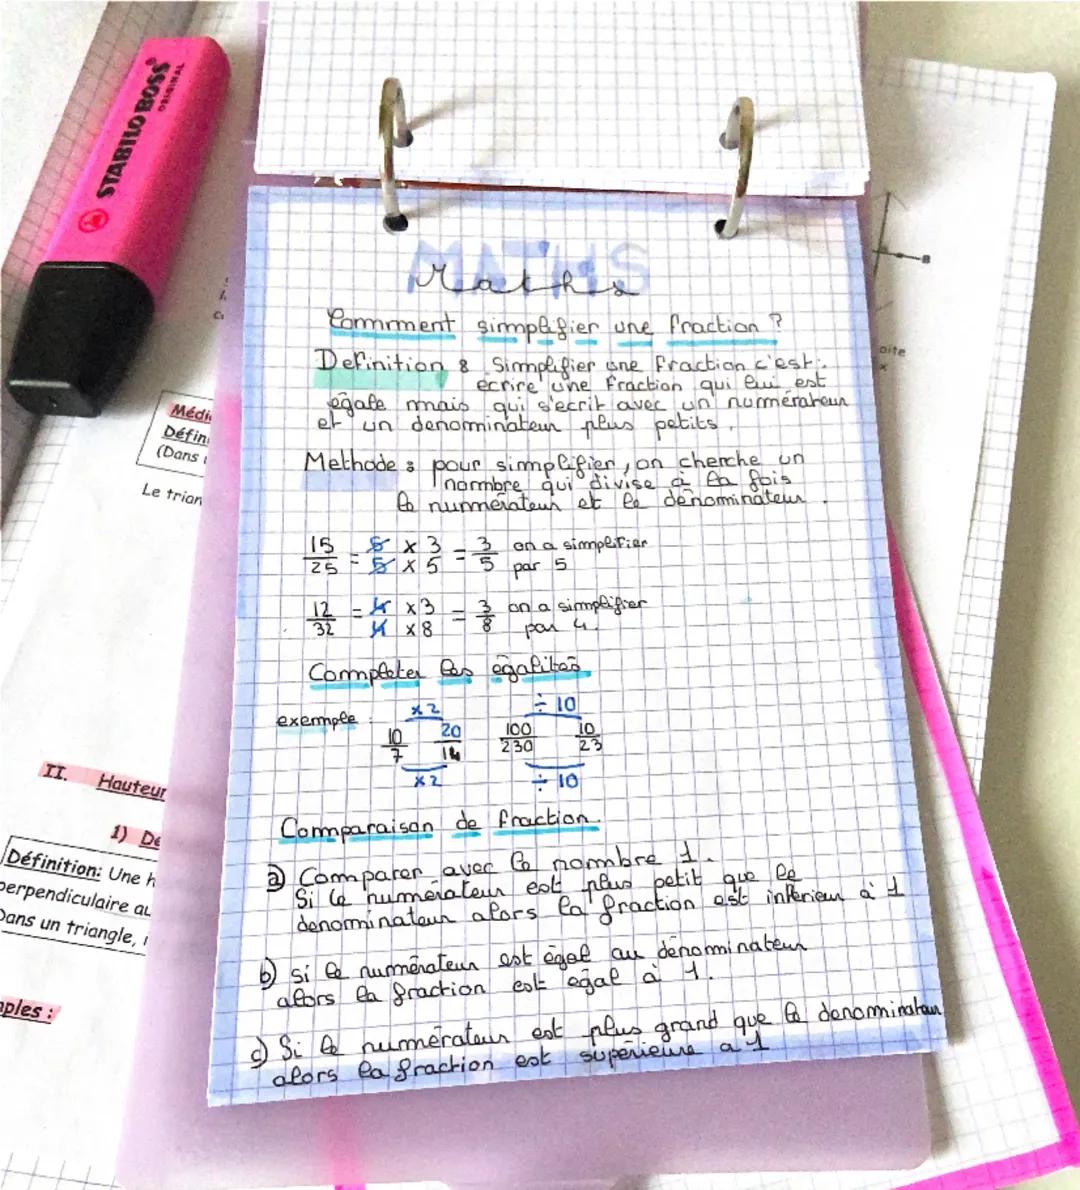 STABILO BOSS
ORIGINAL
MATHS
Maths
Comment simplifier une fraction ?
Definition : Simplifier une fraction c'est :
écrire une fraction qui lui est
égale mais qui s'ecrit avec un numérateur
et un denominateur plus petits.
Methode : pour simplifier, on cherche un
nombre qui divise à la fois
le numérateur et le dénominateur.
15/25 = 5 x 3 / 5 x 5 = 3/5 on a simplifier
par 5
12/32 = 4 x 3 / 4 x 8 = 3/8 on a simplifier
par 4.
Completer les égalités
exemple : x2 ÷ 10
10/7 20/14 100/230 10/23
x2 ÷ 10
Comparaison de fraction
a) Comparer avec le nombre 1.
Si le numérateur est plus petit que le
denominateur alors la fraction est inférieur à 1
b) si le numérateur est égal au dénominateur
alors la fraction est égal à 1.
c) Si le numérateur est plus grand que le denominateur
alors la fraction est supérieure a 1
Médi
Défin
(Dans
Le trian
II. Hauteur
1) Dé
Définition: Une h
perpendiculaire au
Dans un triangle,
mples :
oite
B